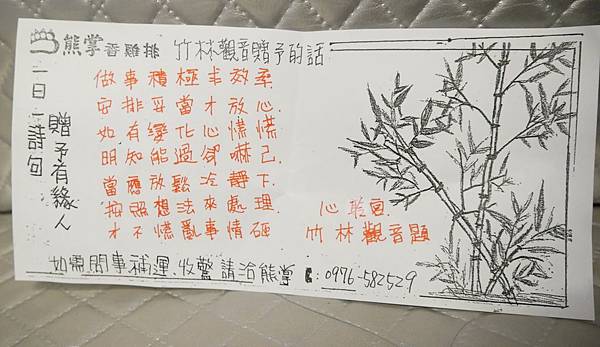 熊掌香雞排 竹林觀音贈予的話
一日一詩句
贈予有緣人
做事積極丰效柔
安排妥當才放心.
如有變化心慌慌
明知能過卻嚇己.
當應放鬆冷靜下.
按照想法來處理.
才不慌亂事情砸
心 宮.
竹林觀音題
如需問事補運、收驚請洽熊掌
:0976-582529